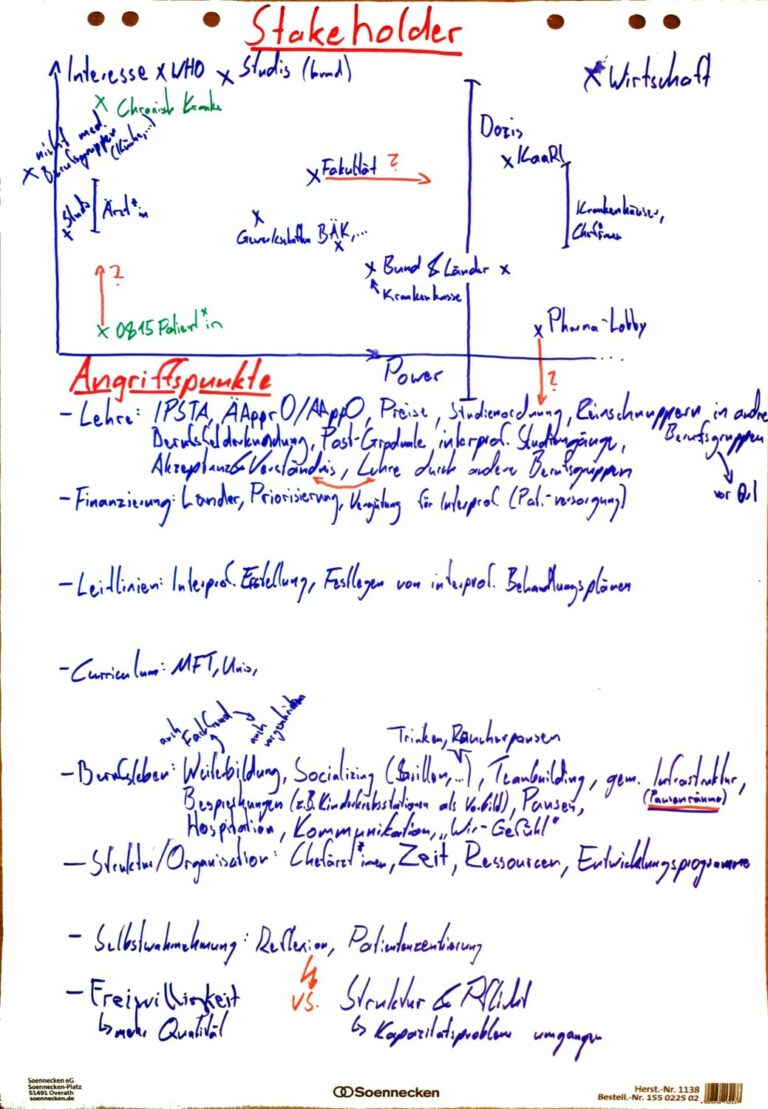 Stakeholder
Interesse x WHO x Studis (bvmd)
x Wirtschaft
x Chronisch Kranke
Dozis
x nicht med. Berufsgruppen
x KaaRL
x Fakultät ?
Krankenhäuser,
Chef*innen
x Studis
Ärzt*in
x
Gewerkschaften BÄK,...
x
x Bund & Länder x
Krankenkasse
?
x 0815 Patient*in
x Pharma-Lobby
?
Power
...
Angriffspunkte
- Lehre: IPSTA, ÄApprO/AAppO, Preise, Studienordnung, Reinschnuppern in andre
Berufsfelderkundung, Post-Graduale interprof. Studiengänge, Berufsgruppen
Akzeptanz & Verständnis, Lehre durch andere Berufsgruppen
vor Ort
- Finanzierung: Länder, Priorisierung, Vergütung für Interprof. (Pat.-versorgung)
- Leitlinien: Interprof. Erstellung, Festlegen von interprof. Behandlungsplänen
- Curriculum: MFT, Unis,
auch Fachfremd auch vorgeschrieben
Trinken, Raucherpausen
- Berufsleben: Weiterbildung, Socializing (Grillen,...), Teambuilding, gem. Infrastruktur,
(Pausenräume)
Besprechungen (z.B. Kinderkrebsstationen als Vorbild), Pausen,
Hospitation, Kommunikation, „Wir-Gefühl"
- Struktur/Organisation: Chefärzt*innen, Zeit, Ressourcen, Entwicklungsprogramme
- Selbstwahrnehmung: Reflexion, Patientenzentrierung
- Freiwilligkeit vs. Struktur & Pflicht
↳ mehr Qualität ↳ Kapazitätsprobleme umgangen
Soennecken eG
Soennecken-Platz
51491 Overath
soennecken.de
Soennecken
Herst.-Nr. 1138
Bestell.-Nr. 155 0225 02